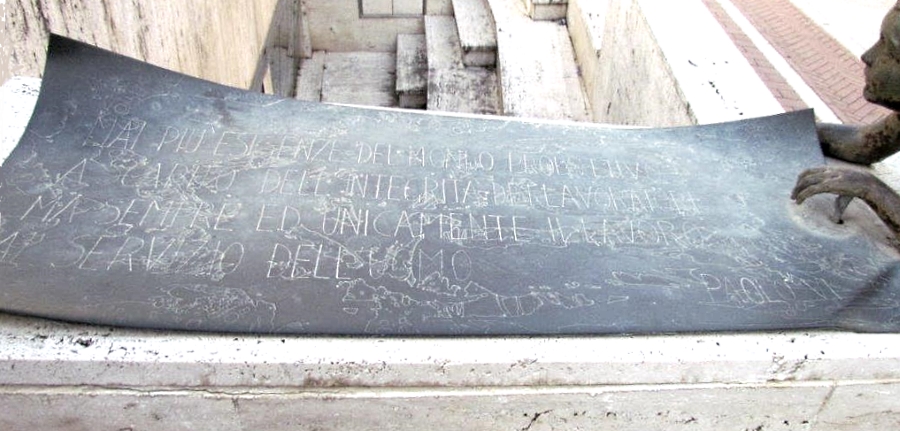 MAI PIÙ ESIGENZE DEL MONDO PRODUTTIVO
A CARICO DELL'INTEGRITÀ DEI LAVORATORI
MA SEMPRE ED UNICAMENTE IL LAVORO
AL SERVIZIO DELL'UOMO
PAOLO